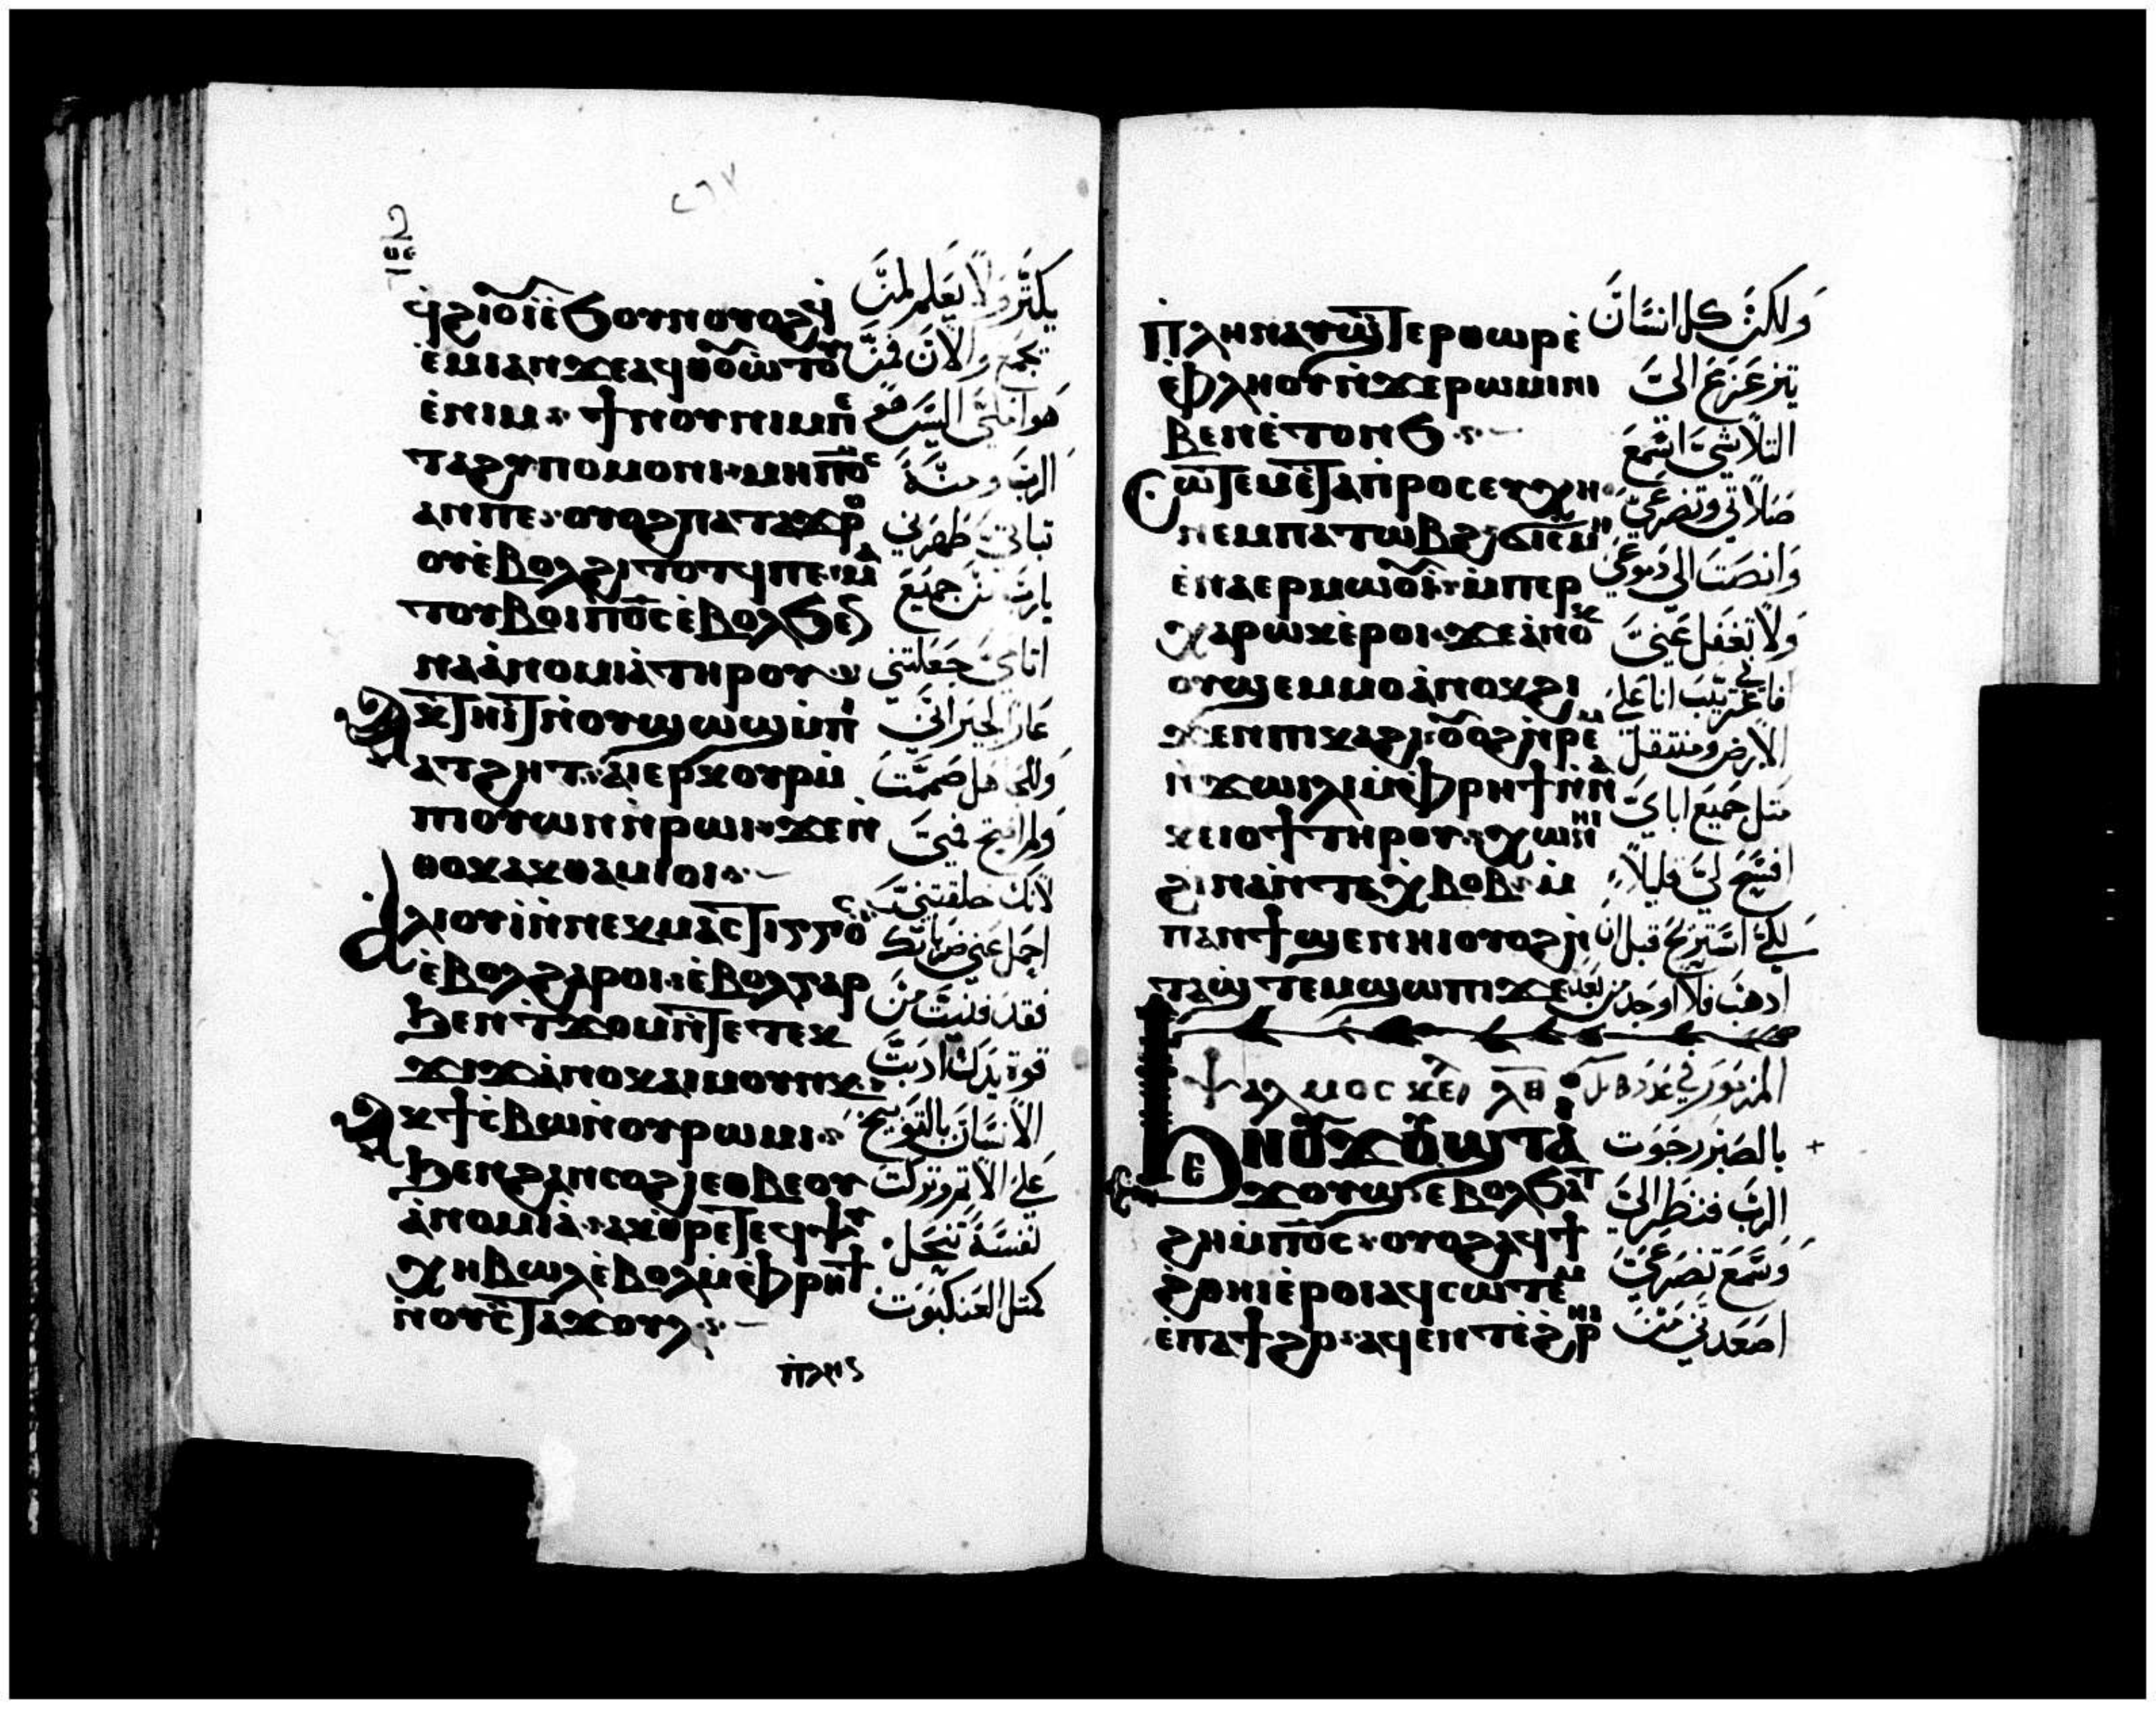 ϥϩⲓⲟⲩⲓ̀ⲉ̀ϧⲟⲩⲛⲟⲩⲟϩϥ̀
ⲉ̀ⲙⲓⲁⲛϫⲉⲁϥⲑⲟⲩⲱⲧⲟⲩ
ⲉ̀ⲛⲓⲙ ϯⲛⲟⲩⲛⲓⲙⲡⲉ
ⲧⲁϩⲩⲡⲟⲙⲟⲛⲓ ⲙⲏⲡ⳪
ⲁⲛⲡⲉ ⲟⲩⲟϩⲡⲁⲧⲁϫⲣⲟ
ⲟⲩⲉ̀ⲃⲟⲗϩⲓⲧⲟⲧϥⲡⲉ ⲙⲁ
ⲧⲟⲩⲃⲟⲓⲡ⳪ⲉ̀ⲃⲟⲗϧⲉⲛ
ⲛⲁⲁ̀ⲛⲟⲙⲓⲁ̀ⲧⲏⲣⲟⲩ
ⲁⲕⲧⲏⲓⲧⲛ̀ⲟⲩϣⲱϣⲙ̀ⲡⲓ
ⲁⲧϩⲏⲧ ⲁⲓⲉⲣⲕⲟⲩⲣⲙ̀
ⲡⲓⲟⲩⲱⲛⲛ̀ⲣⲱⲓ ϫⲉⲛ̀
ⲑⲟⲕⲁⲕⲑⲁⲙⲓⲟⲓ
ⲁⲗⲓⲟⲩⲓ̀ⲛ̀ⲛⲉⲕⲙⲁⲥⲧⲓⲅⲅⲟⲥ
ⲉ̀ⲃⲟⲗϩⲁⲣⲟⲓ ⲉ̀ⲃⲟⲗⲅⲁⲣ
ϧⲉⲛⲧϫⲟⲙⲛ̀ⲧⲉⲧⲉⲕ
ϫⲓϫⲁ̀ⲛⲟⲕⲁⲓⲙⲟⲩⲛⲕ
ⲁⲕϯⲥ̀ⲃⲱⲛ̀ⲟⲩⲣⲱⲙⲓ
ϧⲉⲛϩⲁⲛⲥⲟϩⲓⲉⲑⲃⲉⲟⲩ
ⲁ̀ⲛⲟⲙⲓⲁ̀ ⲁⲕⲑⲣⲉⲧⲉϥⲯⲩ
ⲭⲏⲃⲱⲗⲉ̀ⲃⲟⲗⲙ̀ⲫⲣⲏϯ
ⲛ̀ⲟⲩⲥ̀ⲧⲁϫⲟⲩⲗ
ⲡ̀ⲗⲏⲛ
يكنز ولا يعلم لمن
يجمع والان فمن
هو انتظاري اليس هو
الرب ومنه
تباتي طهرني
يارب من جميع
اتامي جعلتني
عارا للجاهل
ولكني صمت
ولم افتح فمي
لانك خلقتني
احمل عني ضرباتك
فقد فنيت من
قوة يدك ادبت
الانسان بالتوبيخ
على الاتم وتركت
نفسه تنحل
كمتل العنكبوت
ⲡ̀ⲗⲏⲛⲁⲩϣⲧⲉⲣⲑⲱⲣⲉ̀
ⲉ̀ⲫⲗⲏⲟⲩⲛ̀ϫⲉⲣⲱⲙⲓⲛⲓ
ⲃⲉⲛⲉ̀ⲧⲟⲛϧ
ⲥⲱⲧⲉⲙⲉ̀ⲧⲁⲡ̀ⲣⲟⲥⲉⲩⲭⲏ
ⲛⲉⲙⲡⲁⲧⲱⲃϩ ϭⲓⲥⲙⲏ
ⲉ̀ⲛⲁⲉⲣⲙⲱⲟⲩⲓ̀ ⲙ̀ⲡⲉⲣ
ⲭⲁⲣⲱⲕⲉ̀ⲣⲟⲓ ϫⲉⲁ̀ⲛⲟⲕ
ⲟⲩϣⲉⲙⲙⲟⲁ̀ⲛⲟⲕϩⲓ
ϫⲉⲛⲡⲓⲕⲁϩⲓ ⲟⲩⲟϩⲛ̀ⲣⲉⲙ
ⲛ̀ϫⲱⲓⲗⲓⲙ̀ⲫⲣⲏϯⲛ̀ⲛⲁ
ⲕⲉⲓⲟϯⲧⲏⲣⲟⲩ ⲭⲱⲛⲏⲓ
ϩⲓⲛⲁⲛ̀ⲧⲁⲭⲃⲟⲃ ⲙ
ⲡⲁⲛϯϣⲉⲛⲏⲓⲟⲩⲟϩⲛ̀
ⲧⲁϣⲧⲉⲙϣⲱⲡⲓ ϫⲉ
ولكن كل انسان
يتزعزع الي
التلاشي اسمع
صلاتي وتضرعي
وانصت الي دموعي
ولا تغفل عني
فاني غريب انا على
الارض ومنتقل
متل جميع اباي
افسح لي قليلا
لكي استريح قبل ان
ادهب فلا اوجد من بعد
ⲯⲁⲗⲙⲟⲥ ⲗⲑ المزمور في عدد
ϧⲉⲛⲟⲩϫⲟⲩϣⲧⲁⲓ
ϫⲟⲩϣⲧⲉⲃⲟⲗϧⲁϫ
ϩⲏⲙ̀ⲡ⳪ ⲟⲩⲟϩⲁϥϯ
ϩ̀ⲑⲏⲓⲉ̀ⲣⲟⲓⲁϥⲥⲱⲧⲉⲙ
ⲉ̀ⲡⲁϯϩⲟ ⲁϥⲉⲛⲧⲉ̀ϩⲣⲏⲓ
بالصبر رجوت
الرب فنظر الي
وسمع تضرعي
اصعدني من